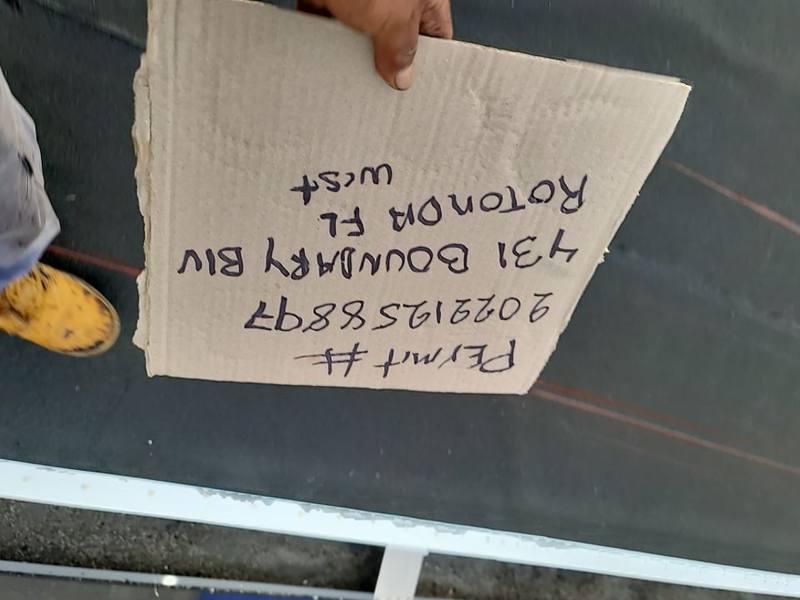 PErmit #
20221258897
431 BOUNDARY BlV
ROTONDA FL
West